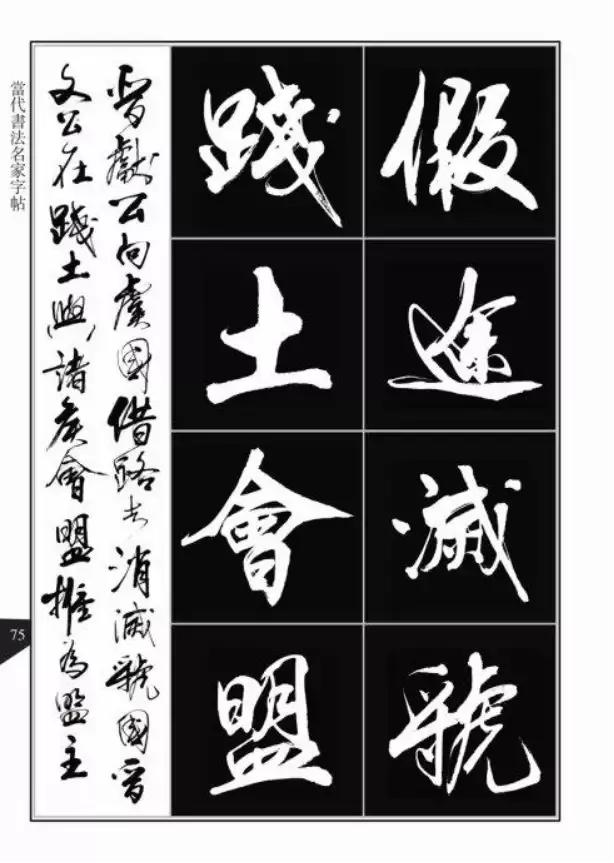 假途滅虢
踐土會盟
晉獻公向虞國借路去消滅虢國晉
文公在踐土與諸侯會盟推為盟主
當代書法名家字帖
75